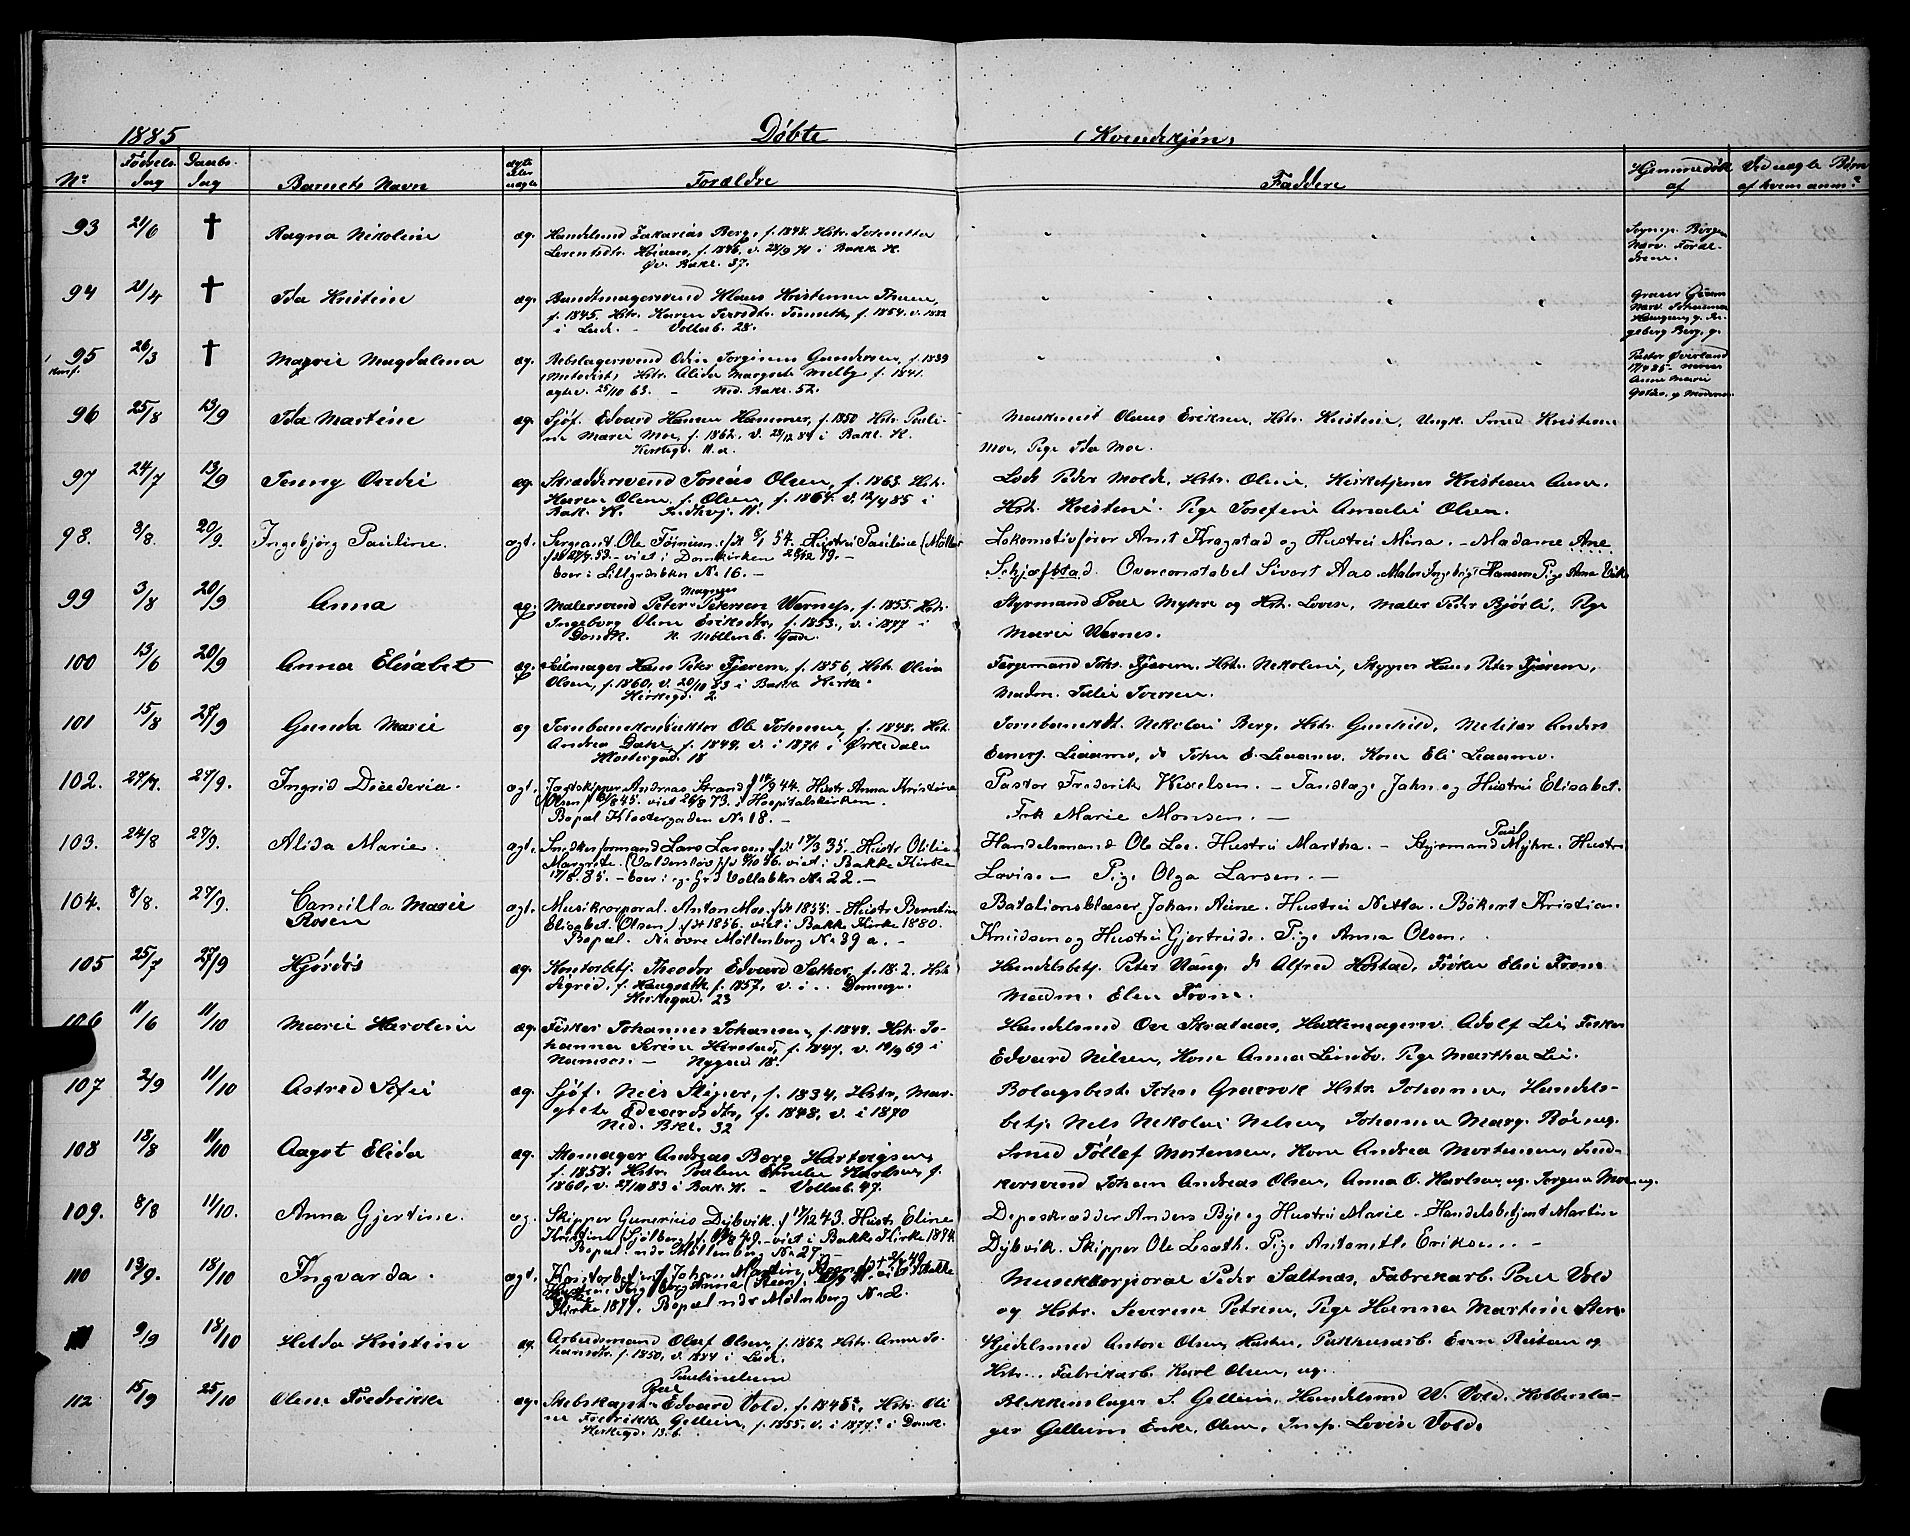 1885 Døbte (Kvindekjøn)
No Fødsels dag Daabs dag Barnets Navn ægte eller uægte Forældre Faddere Hjemmedøbt af Ved uægte Børn af hvem anm?
93 21/6 † Ragna Nikoline æg. Handelsmd Zakarias Berg, f. 1848. Hstr. Tohnetta
Lorentsdtr. f. 1846, v. 28/9 71 i Bakk K.
Øv. Bakl. 37.
94 21/4 † Ida Kristine æg. Bundtmagersvend Klaus Kristensen Thuen,
f. 1845. Hstr. Karen f. 1854. v. 1882
i Lade. – Vollab. 28.
95 26/3 † Magda Magdalena æg. Rebslagersvend Odin Jørginus Gundersen, f. 1839
Hstr. Alida Margrete Melby f. 1841.
v. 25/10 63. – Ned. Bakl. 52.
Pastor Øverland
17/4 85
Anne Marie
96 25/8 13/9 Ida Martine æg. Sjøf. Edvard Hansen Hammer, f. 1850 Hstr. Pauli-
ne Marie Moe, f. 1862. v. 28/12 84 i Bakl. K.
Kirkegd. 11.a
Maskinist Olaus Eriksen, Hstr. Kristine, Ungk. Smed Kristian
Moe, Pige Ida Moe.
97 24/7 13/9 Jenny Ovedie æg. Skræddersvend Tonias Olsen, f. 1863. Hstr.
Karen Oline f. Olsen, f. 1864. v. 12/4 85 i
Bak. K.
Lods Peder Molde, Hstr. Oline, Kirketjener Kristian Aune.
Hstr. Kristine. Pige Josefine Amalie Olsen.
98. 3/8. 20/9. Ingebjørg Pauline. ægt. Sergeant Ole Tømmer. fdt 8/1 54. Hustru Pauline (Möller
fdt 27/9. 53. – viet i Domkirken 28/12 79. –
boer i Lillegrdsbkn No 16. –
Lokomotivfører Arnt Krogstad og Hustru Mina. – Madame Ane
Schjefstad. Overconstabel Sivert Aas. Maler Ingebrigt Hansen Pige Anna Vik
99 3/8 20/9 Anna æg. Malersvend Peter Magnus Petersen Wernes, f. 1855. Hstr.
Ingeborg Oline Eriksdtr, f. 1853., v. i 1877 i
Domk. N. Møllenb. Gade.
Styrmand Poul Myhre og Hst. Lovise, Maler Peder Bjørli, Pige
Marie Wernes.
100 13/6 20/9 Anna Elisabet æg. Seilmager Hans Peter Fjærem, f. 1856, Hstr. Olivia
Olsen, f. 1860, v. 20/10 83 i Bakke Kirke.
Kirkegd. 2
Færgemand Johs. Fjærem, Hstr. Nikoline, Skipper Hans Peter Fjærem,
Madm. Tulie Iversen.
101 15/8 27/9 Gunda Marie æg Jernbanekonduktør Ole Johnsen, f. 1848. Hstr.
Andrea f. 1849. v. i 1871 i Ørkedalen
Klostergad. 18
Jernbanekdt. Nikolai Berg, Hstr. Gunhild, Militær Anders
Eenersj. Leaamo, do John E. Leaamo. Kone Eli Leaamo.
102. 27/7. 27/9. Ingrid Diederia. ægt. Jægtskipper Andreas Strand f 17/9 44. Hustr Anna Kristine
(Olsen f 13/8 45. viet 26/8 73. i Hospitalskirken.
Bopæl Klostergaden No 18. –
Pastor Frederik Wexelsen. – Tandlæge Jahn og Hustru Elisabet.
Frk Marie Monsen. –
103. 24/8 27/9. Alida Marie. ægt. Snedkerformand Lars Larsen fdt 17/3 35. – Hustr Otilie
Margrete. (Valderslöv) fdt 8/10 46. viet i Bakke Kirke
Vollabkn No 22. –
Handelsmand Ole Loe. Hustru Martha. – Styrmand Paul Myhre. Hustru
Lovise – Pige Olga Larsen. –
104. 8/8. 27/9. Camilla Marie Rosen ægt. Musikcorporal. Anton Moe. fdt 1855. – Hustr Berntine
Elisabet. (Olsen) fdt 1856. viet i Bakke Kirke 1880.
Bopæl. No övre Möllenberg No 39 a. –
Batalionsblæser Johan Aune. Hustru Netta. Bökert Kristian
Knudsen og Hustru Gjertrude. Pige Anna Olsen.
105 25/7 27/9 Hjørdis æg. Kontorbetj. Theodor Edvard Sather, f. 18.2. Hstr
Sigrid, f. Haugseth f. 1857, v. i ..
Kirkegad. 23
Handelsbetj. Peter Vang. do Alfred Hostad, Frøken Elise From
Madm. Elen From.
106 11/6 11/10 Marie Karoline æg. Fisker Johannes Johansen, f. 1844. Hstr. Jo-
hanna Serine Herstad, f. 1847, v. 19/9 69 i
Namsos. – Nygad. 18.
Handelsmd Ove Hattemagersv. Adolf Lie, Fisker
Edvard Nilsen, Kone Anna Limbo. Pige Martha Lie.
107 2/9 11/10 Astrid Sofie æg. Sjøf. Nils Stigner, f. 1834. Hstr. Mar-
grete Edvardsdtr, f. 1848, v. i 1870
Ned. Bkl. 32
Bolagsbest. Johan Hstr. Johanna, Handels-
betj. Nels Nikolai Nelsen, Johanna Marg.
108 18/8 11/10 Aagot Elida æg. Skomager Andreas Berg Hartvigsen,
f. 1858. Hstr. Emilie Karlsen, f.
1860, v. 27/10 83 i Bak. K. – Vollab. 47.
Smed Tøllef Mortensen, Kone Andrea Mortensen, Sned-
kersvend Johan Andreas Olsen, Anna O. Karlsen, ug. Jørgen Moe, ug.
109. 8/8 11/10. Anna Gjertine. æg. Skipper Gunerius Dybvik. f 17/12 43. Hustr Eline
Kristine (Sjölberg) f. 49. – viet i Bakke Kirke 1874
Bopæl ndr Möllenberg No 27. –
Deposkrædder Anders Bye og Hustru Marie. – Handelsbetjent Martin
Dybvik. Skipper Ole Leseth. Pige Antonette Eriksen. –
110 13/9. 18/10 Ingvarda. ægt. Kontorbetjent Johan Martin
Kirke 1877. Bopæl ndr Mölnberg No 2.
Musikkorporal Peder Saltnæs, Fabrikarb. Paul Vold
og Hstr. Severine Petrine, Pige Hanna Martine
111 9/9 18/10 Helda Kristine æg. Arbeidsmand Oluf Olsen, f. 1862 Hstr. Anne Jo-
hansdtr. f. 1850, v. 1884 i Lade.
Kjedelsmed Anton Olsen, Hustru, Pakhusarb. Even Reitan og
Hstr.. Fabrikarb. Karl Olsen, ug.
112 15/9 25/10 Oline Fredrikke æg. Skibskapt. Paul Edvard Vold, f. 1845?, Hstr. Oli-
ne Fredrikke Gellein, f. 1855. v. i 1877? i Domk.
Kirkegd. 13.b.
Blikkenslager S. Gellein, Handelsmd W. Vold, Kobbersla-
ger Gellein Enke, Oline, Lovise Vold.